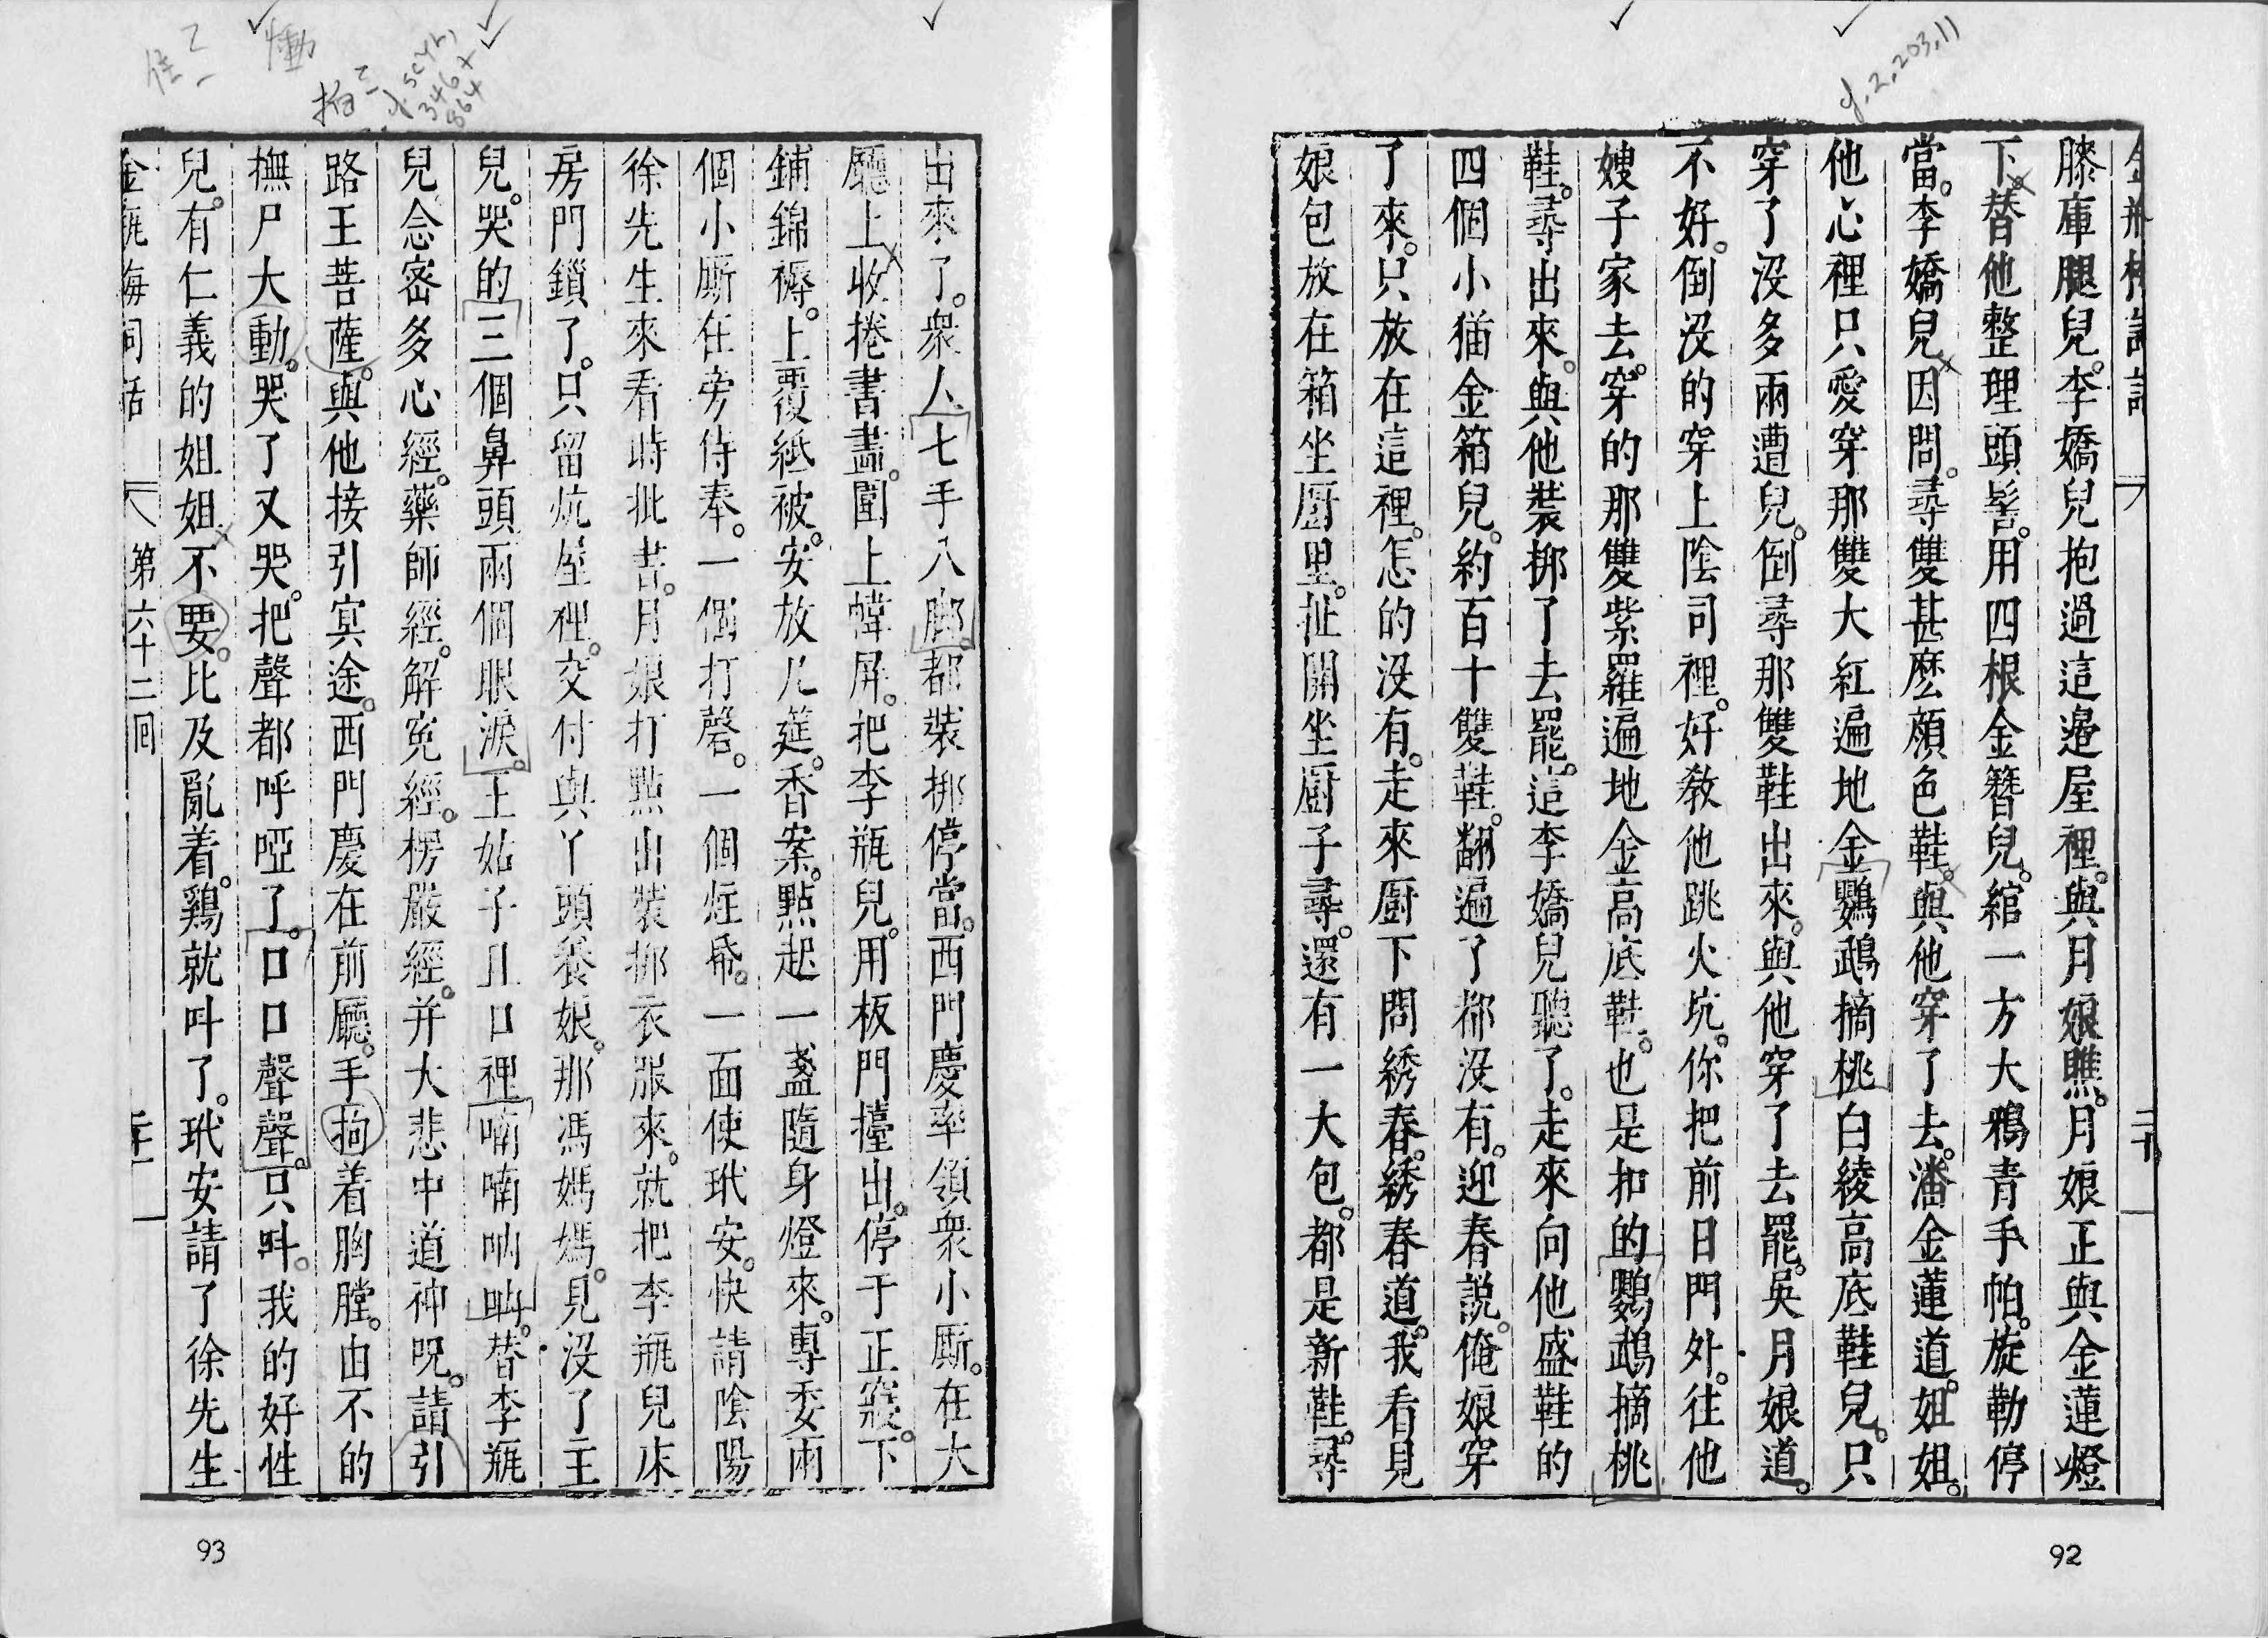 膝庫腿兒。李嬌兒抱過這邊屋裡。與月娘瞧。月娘正與金蓮燈
下。替他整理頭髻。用四根金簪兒。綰一方大鴉青手帕。旋勒停
當。李嬌兒因問。尋雙甚麽顏色鞋。與他穿了去。潘金蓮道。姐姐。
他心裡只愛穿那雙大紅遍地金鸚鵡摘桃白綾高底鞋兒。只
穿了沒多兩遭兒。倒尋那雙鞋出來。與他穿了去罷。吳月娘道。
不好。倒沒的穿上陰司裡。好教他跳火坑。你把前日門外。往他
嫂子家去。穿的那雙紫羅遍地金高底鞋。也是扣的鸚鵡摘桃
鞋。尋出來。與他裝挷了去罷。這李嬌兒聽了。走來向他盛鞋的
四個小描金箱兒。約百十雙鞋。翻遍了都沒有。迎春說。俺娘穿
了來。只放在這裡。怎的沒有。走來廚下問綉春。綉春道。我看見
娘包放在箱坐廚里。扯開坐廚子尋。還有一大包。都是新鞋。尋
92
出來了。衆人七手八脚。都裝挷停當。西門慶率領衆小厮。在大
廳上收捲書畫。圍上幃屏。把李瓶兒。用板門擡出。停于正寢。下
鋪錦褥。上覆紙被。安放几筵。香案。點起一盞隨身燈來。專委兩
個小厮在旁侍奉。一個打磬。一個炷帋。一面使玳安。快請陰陽
徐先生來看時批書。月娘打點出裝挷衣服來。就把李瓶兒床
房門鎖了。只留炕屋裡。交付與丫頭養娘。那馮媽媽。見沒了主
兒。哭的三個鼻頭兩個眼淚。王姑子且口裡喃喃吶吶。替李瓶
兒念密多心經。藥師經。解寃經。楞嚴經。并大悲中道神咒。請引
路王菩薩。與他接引冥途。西門慶在前廳。手拘着胸膛。由不的
撫尸大動。哭了又哭。把聲都呼啞了。口口聲聲。只叫。我的好性
兒。有仁義的姐姐不要。比及亂着。鷄就叫了。玳安請了徐先生
金瓶梅詞話 第六十二回
93